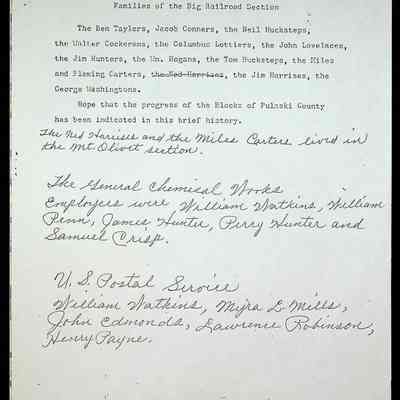 Families of the Big Railroad Section
The Ben Taylors, Jacob Conners, the Neil Hucksteps,
the Walter Cockerons, the Columbus Lottiers, the John Lovelaces,
the Jim Hunters, the Wm. Hogans, the Tom Hucksteps, the Miles
and Fleming Carters, the Ned Harrises, the Jim Harrises, the
George Washingtons.
Hope that the progress of the Blacks of Pulaski County
has been indicated in this brief history.
The Ned Harrises and the Miles Carters lived in
the Mt. Olivet section.
The General Chemical Works
Employees were William Watkins, William
Penn, James Hunter, Perry Hunter and
Samuel Crisp.
U. S. Postal Service
William Watkins, Myra L Mills,
John Edmonds, Lawrence Robinson,
Henry Payne.